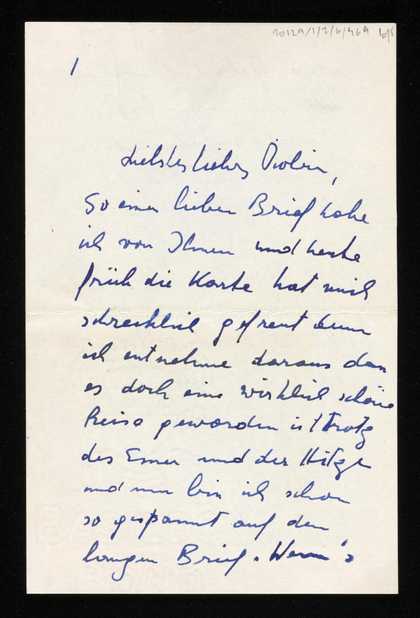 1
Liebstes liebes
So einen lieben Brief habe
ich von Ihnen und heute
früh die Karte hat mich
schrecklich gefreut denn
ich entnehme daraus dass
es doch eine wirklich schöne
Reise geworden ist trotz
des und der Hitze
und nun bin ich schon
so gespannt auf den
langen Brief. Wenn's